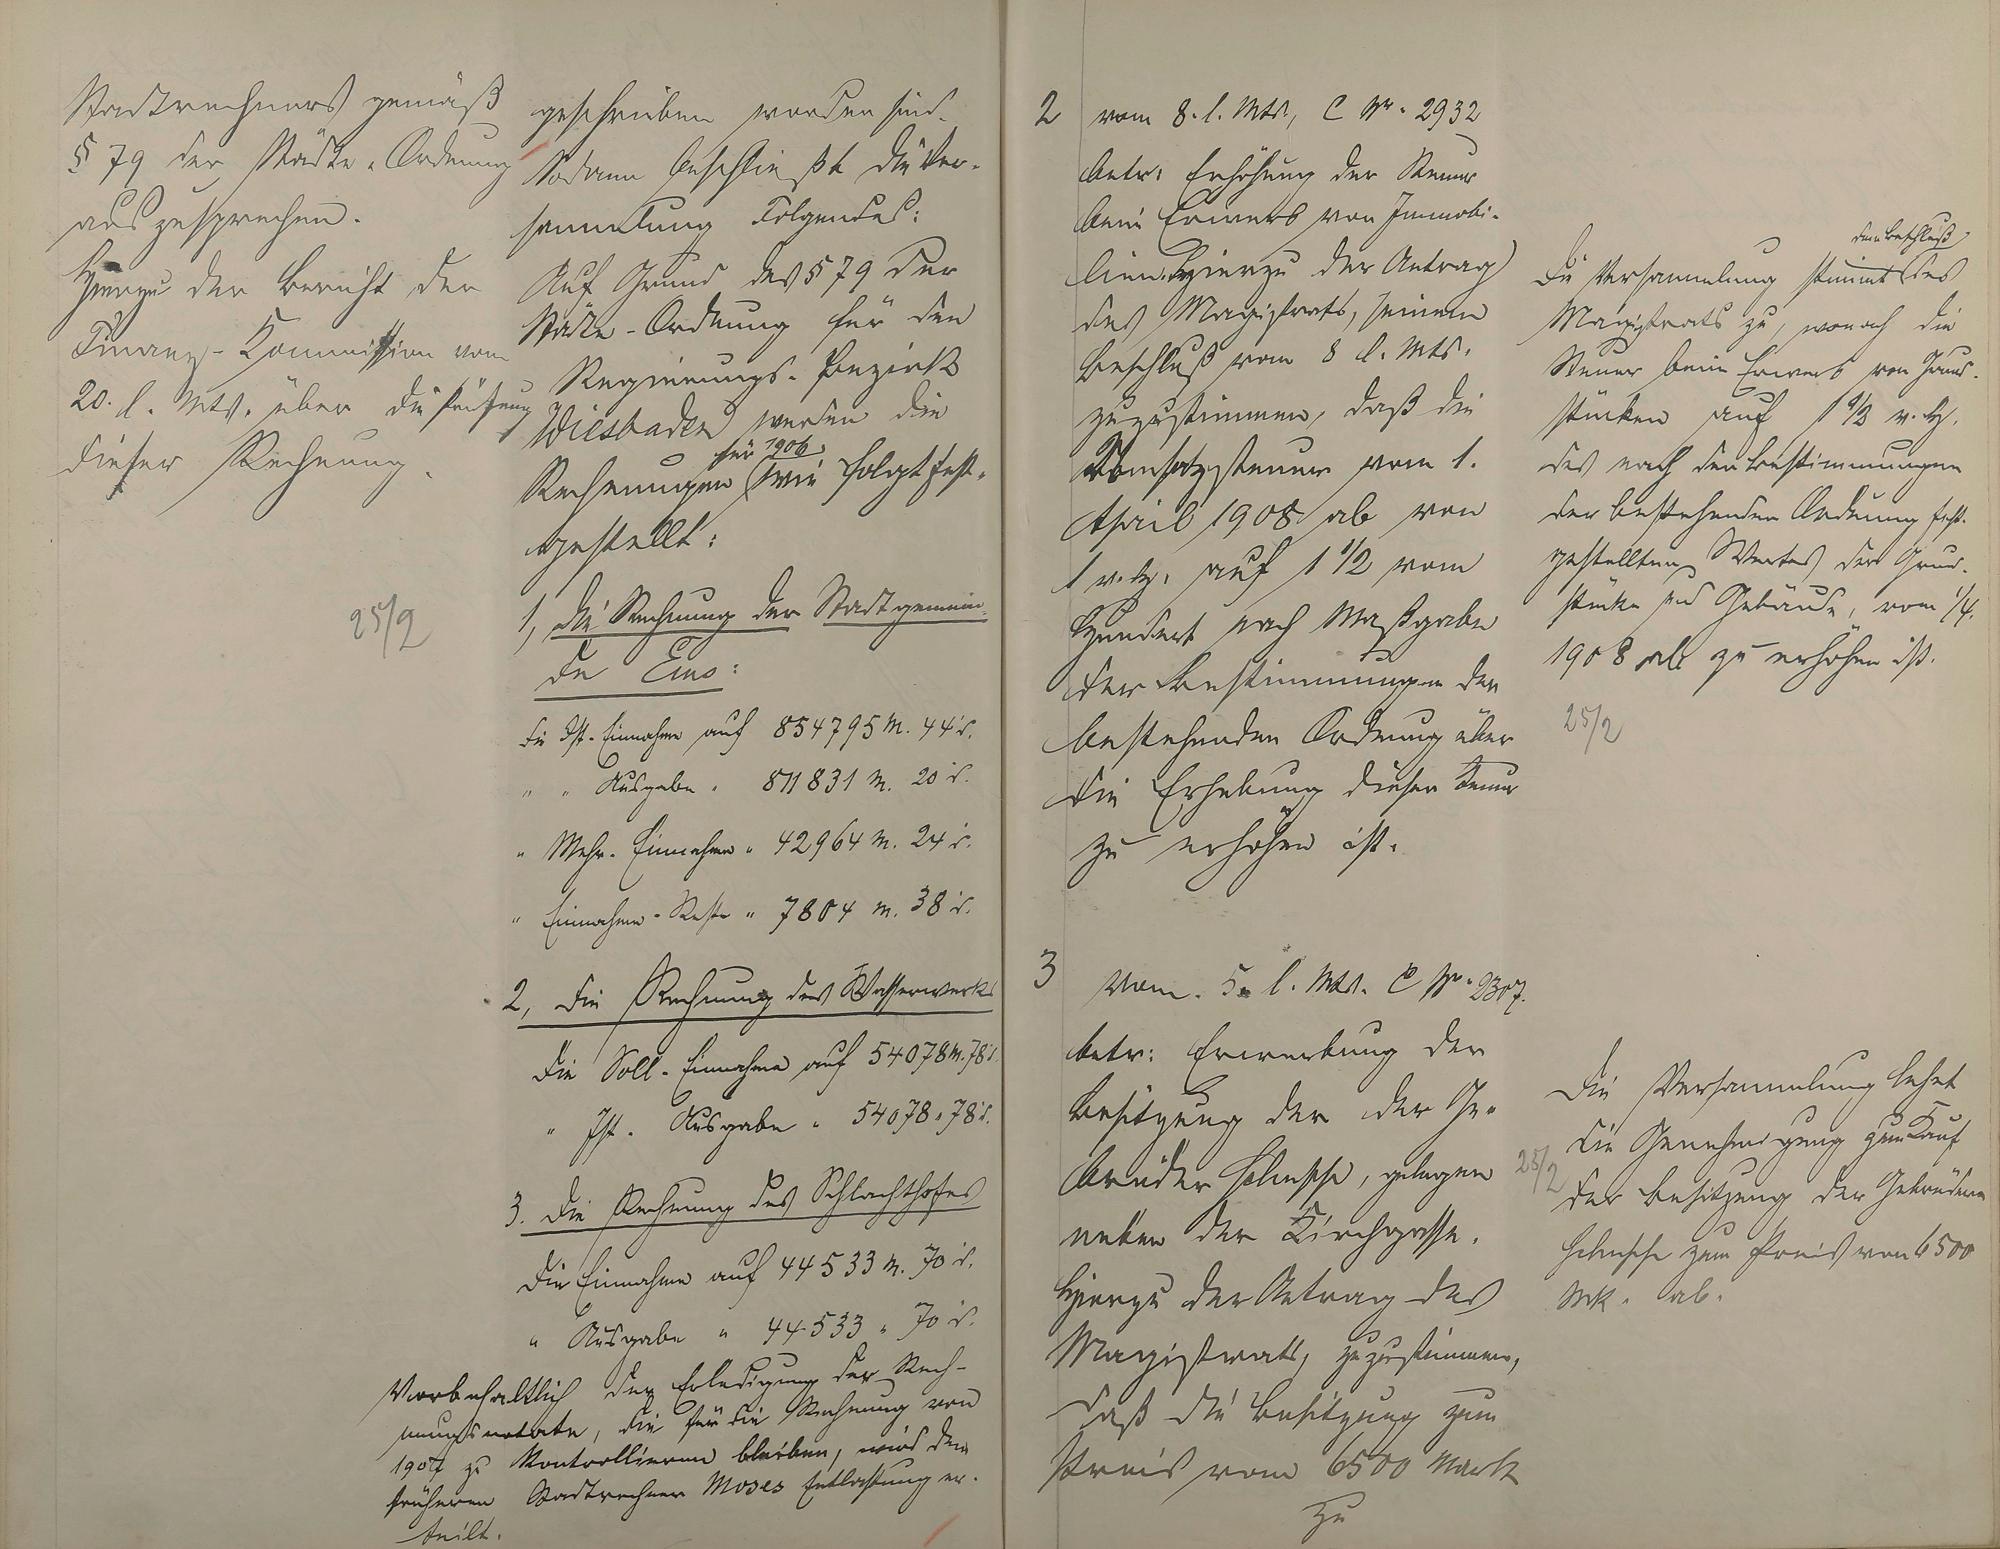 Stadtrechners gemäß
§ 79 der Städte-Ordnung
auszusprechen.
Hierzu der Bericht der
Finanz-Kommission vom
20. l. Mts. über die Prüfung
dieser Rechnung.
25/2
geschrieben worden sind.
Sodann beschließt die Ver-
sammlung Folgendes:
Auf Grund des § 79 der
Städte-Ordnung für den
Regierungs-Bezirk
Wiesbaden werden die
für 1906
Rechnungen wie folgt fest-
gestellt:
1, die Rechnung der Stadtgemein-
de Ems:
die Ist-Einnahme auf 854795 M. 44 d.
" " Ausgabe " 811831 M. 20 d.
" Mehr-Einnahme " 42964 M. 24 d.
" Einnahme-Reste " 7804 M. 38 d.
2, die Rechnung des Wasserwerks
die Soll-Einnahme auf 54078 M. 78 d.
" Ist-Ausgabe " 54078 " 78 d.
3. die Rechnung des Schlachthofes
die Einnahme auf 44533 M. 70 d.
" Ausgabe " 44533 " 70 d.
Vorbehaltlich der Erledigung der Rech-
nungsnotate, die für die Rechnung von
1907 zu kontrollieren bleiben, wird dem
früheren Stadtrechner Moses Entlastung er-
teilt.
2 vom 8. l. Mts., C Nr. 2932
betr: Erhöhung der Steuer
beim Erwerb von Immobi-
lien. Hierzu der Antrag
des Magistrats, seinem
Beschluß vom 8 l. Mts.
zuzustimmen, daß die
Umsatzsteuer vom 1.
April 1908 ab von
1 v. H. auf 1 1/2 vom
Hundert nach Maßgabe
der Bestimmungen der
bestehenden Ordnung über
die Erhebung dieser Steuer
zu erhöhen ist.
dem Beschluß
Die Versammlung stimmt des
Magistrats zu, wonach die
Steuer beim Erwerb von Grund-
stücken auf 1 1/2 v. H.
des nach den Bestimmungen
der bestehenden Ordnung fest-
gestellten Wertes der Grund-
stücke und Gebäude, vom 1/4.
1908 ab zu erhöhen ist.
25/2
3 vom 5. l. Mts. C Nr. 2307.
betr: Erwerbung der
Besitzung der der Ge-
brüder, gelegen
neben der Kirchgasse.
Hierzu der Antrag des
Magistrats, zuzustimmen,
daß die Besitzung zum
Preis vom 6500 Mark
zu
25/2
Die Versammlung lehnt
die Genehmigung zum Kauf
der Besitzung der Gebrüder
zum Preis von 6500
Mk. ab.